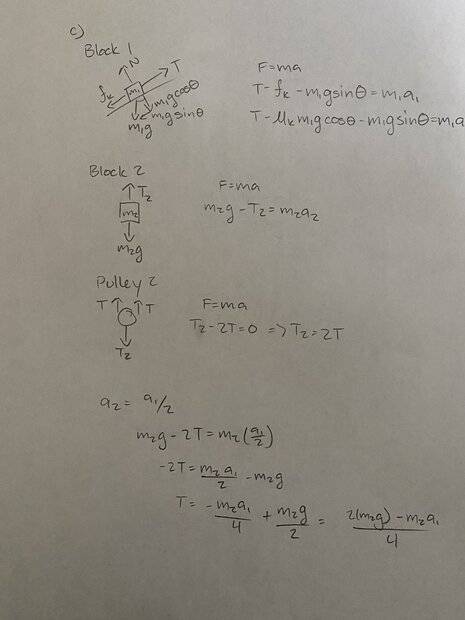 c)
Block 1
N
T
fₖ
m₁
m₁gcosθ
m₁gsinθ
m₁g
F=ma
T-fₖ-m₁gsinθ=m₁a₁
T-μₖm₁gcosθ-m₁gsinθ=m₁a
Block 2
T₂
m₂
m₂g
F=ma
m₂g-T₂=m₂a₂
Pulley 2
T T
T₂
F=ma
T₂-2T=0 => T₂=2T
a₂= a₁/2
m₂g-2T=m₂(a₁/2)
-2T=m₂a₁/2 -m₂g
T= -m₂a₁/4 + m₂g/2 = 2(m₂g)-m₂a₁/4